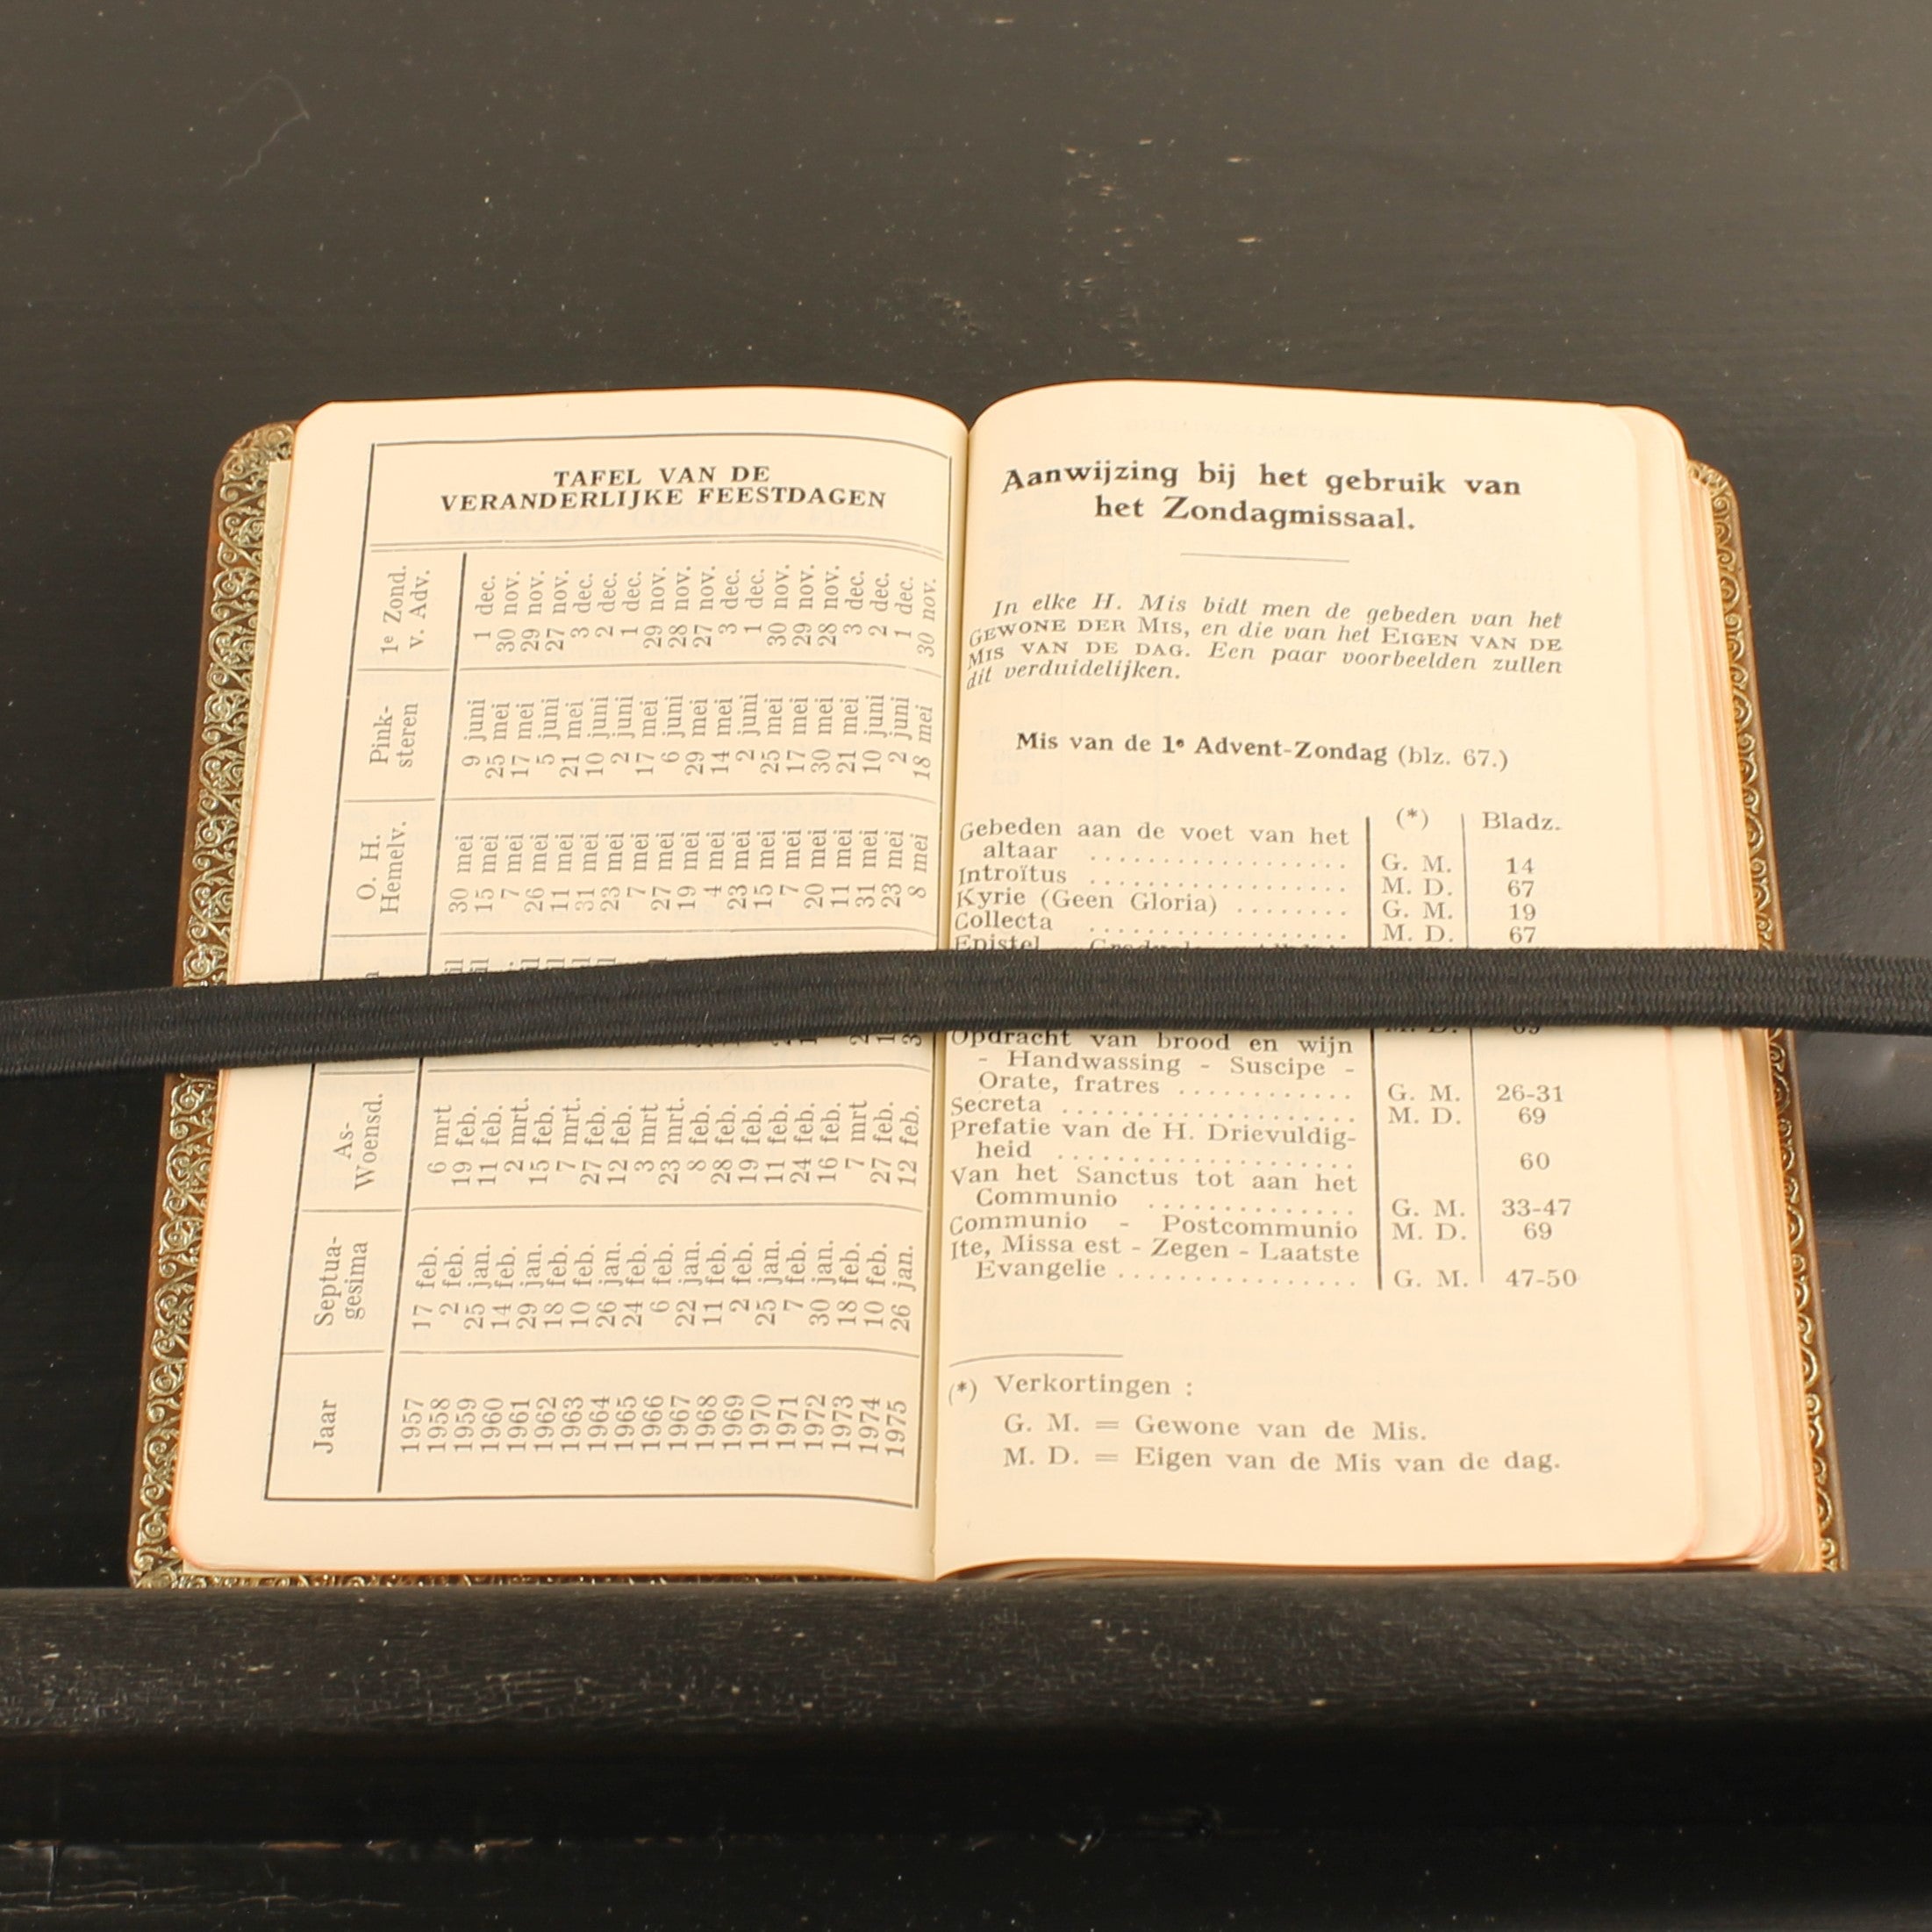 TAFEL VAN DE
VERANDERLIJKE FEESTDAGEN
Jaar Septua- As- O. H. Pink- 1e Zond.
gesima Woensd. Hemelv. steren v. Adv.
1957 17 feb. 6 mrt 30 mei 9 juni 1 dec.
1958 2 feb. 19 feb. 15 mei 25 mei 30 nov.
1959 25 jan. 11 feb. 7 mei 17 mei 29 nov.
1960 14 feb. 2 mrt. 26 mei 5 juni 27 nov.
1961 29 jan. 15 feb. 11 mei 21 mei 3 dec.
1962 18 feb. 7 mrt. 31 mei 10 juni 2 dec.
1963 10 feb. 27 feb. 23 mei 2 juni 1 dec.
1964 26 jan. 12 feb. 7 mei 17 mei 29 nov.
1965 24 feb. 3 mrt 27 mei 6 juni 28 nov.
1966 6 feb. 23 mrt. 19 mei 29 mei 27 nov.
1967 22 jan. 8 feb. 4 mei 14 mei 3 dec.
1968 11 feb. 28 feb. 23 mei 2 juni 1 dec.
1969 2 feb. 19 feb. 15 mei 25 mei 30 nov.
1970 25 jan. 11 feb. 7 mei 17 mei 29 nov.
1971 7 feb. 24 feb. 20 mei 30 mei 28 nov.
1972 30 jan. 16 feb. 11 mei 21 mei 3 dec.
1973 18 feb. 7 mrt 31 mei 10 juni 2 dec.
1974 10 feb. 27 feb. 23 mei 2 juni 1 dec.
1975 26 jan. 12 feb. 8 mei 18 mei 30 nov.
Aanwijzing bij het gebruik van
het Zondagmissaal.
In elke H. Mis bidt men de gebeden van het
GEWONE DER MIS, en die van het EIGEN VAN DE
MIS VAN DE DAG. Een paar voorbeelden zullen
dit verduidelijken.
Mis van de 1e Advent-Zondag (blz. 67.)
(*) Bladz.
Gebeden aan de voet van het
altaar .................. G. M. 14
Introïtus .................. M. D. 67
Kyrie (Geen Gloria) ........ G. M. 19
Collecta .................. M. D. 67
Epistel
M. D. 69
Opdracht van brood en wijn
- Handwassing - Suscipe -
Orate, fratres ............ G. M. 26-31
Secreta .................... M. D. 69
Prefatie van de H. Drievuldig-
heid .................... 60
Van het Sanctus tot aan het
Communio .............. G. M. 33-47
Communio - Postcommunio M. D. 69
Ite, Missa est - Zegen - Laatste
Evangelie ................ G. M. 47-50
(*) Verkortingen :
G. M. = Gewone van de Mis.
M. D. = Eigen van de Mis van de dag.